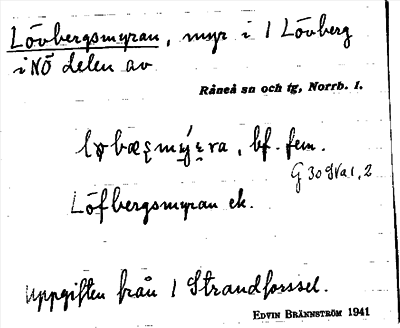 Lövbergsmyran, myr i 1 Lövberg
i NÖ delen av
Råneå sn och tg, Norrb. l.
bf. fem.
G 30 SVa 1, 2
Löfbergsmyran ek.
Uppgiften från 1 Strandforssel.
EDVIN BRÄNNSTRÖM 1941